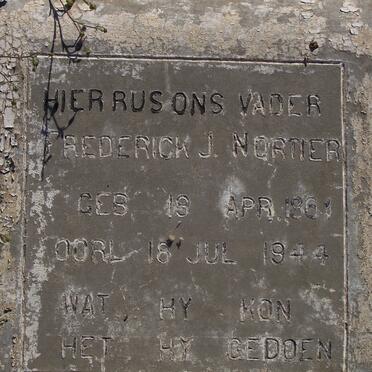 HIER RUS ONS VADER
FREDERICK J. NORTIER
GEB 18 APR 1864
OORL 18 JUL 1944
WAT HY KON
HET HY GEDOEN